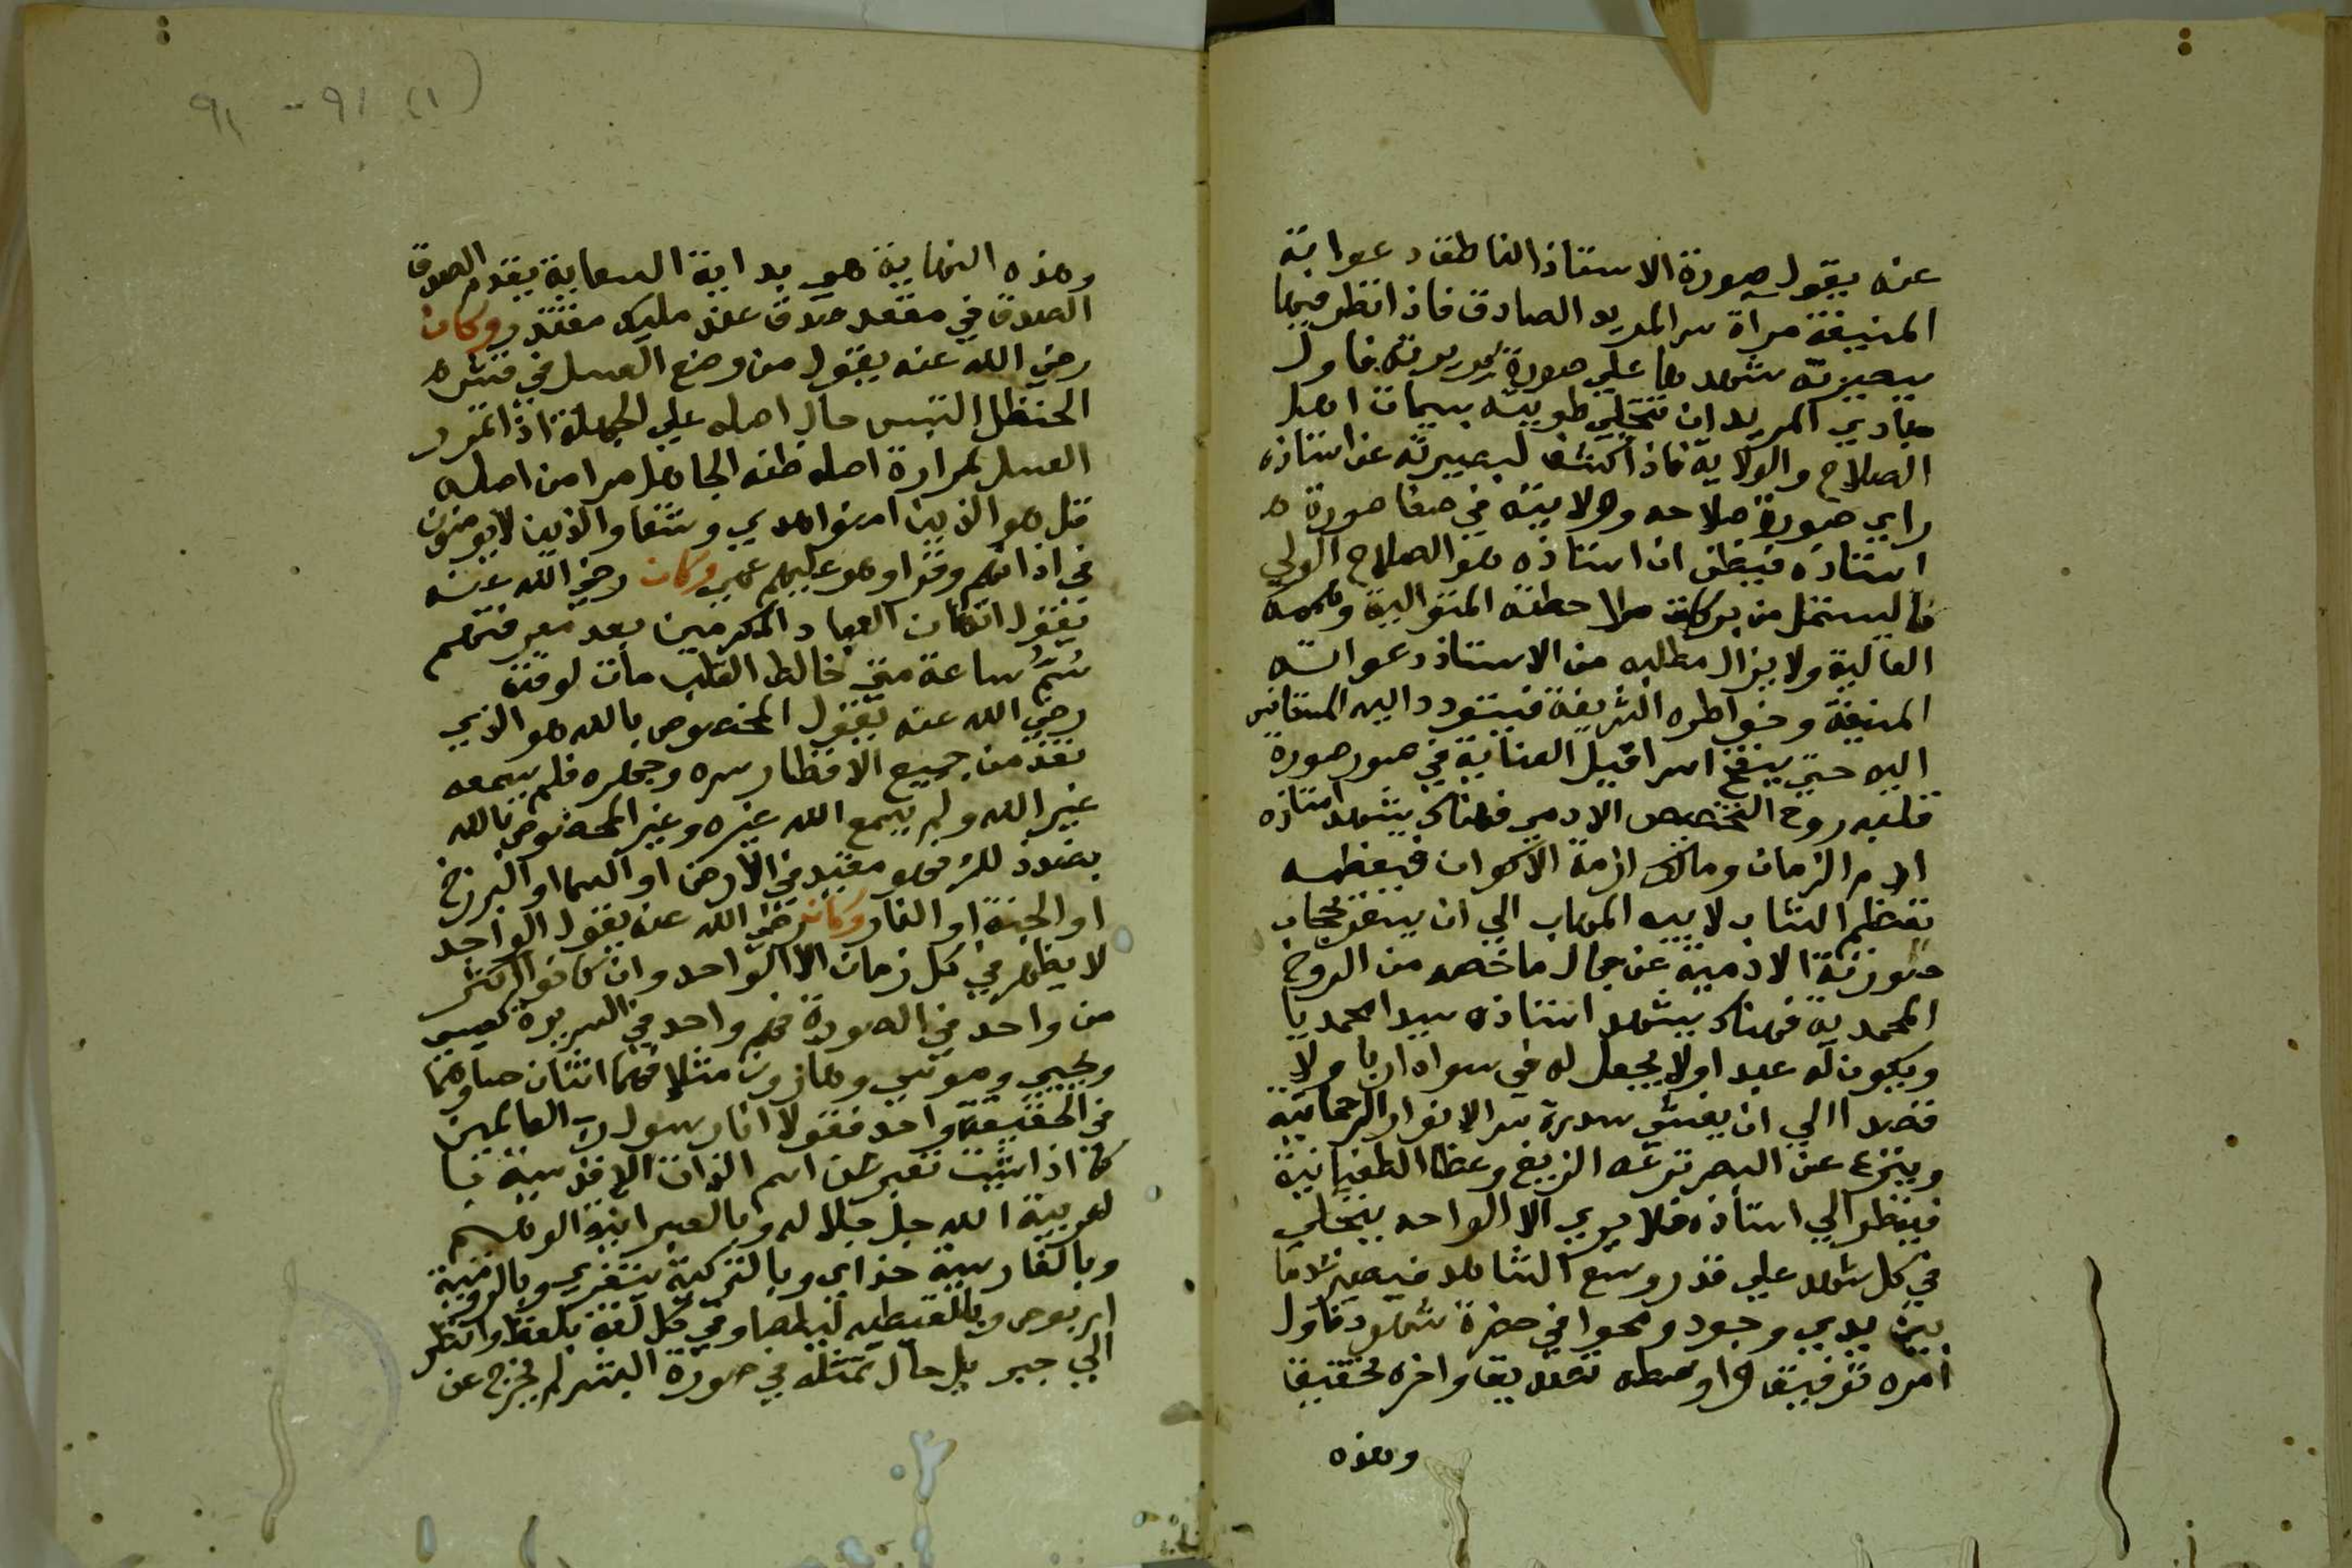 عنه يقول صورة الاستاذ الناطقة دعوانة
المنيفة مراة سر المريد الصادق فاذا نظر فيها
ببصيرته شهدها على صورة سريرته فاول
مبادي المريد ان تتحلى طويته بسمات اهل
الصلاح والولاية فاذا كشف لبصيرته عن استاذه
راي صورة صلاحه وولايته في صفا صورة
استاذه فيظن ان استاذه هو الصلاح الولي
فاليستمل من بركات ملاحظته المتوالية وهممه
العالية ولا يزال مطلبه من الاستاذ دعواته
المنيفة وخواطره الشريفة فيتودد اليه
اليه حتى ينفخ اسرافيل العناية في صور صورة
قلبه روح التخصيص الادمي فهناك يشهد استاذه
ادم الزمان ومالك ازمة الاكوان فيعظمه
تعظيم الشاب لابيه المهاب الي ان يسفر حجاب
صورته الادمية عن جمال ما خصه من الروح
المحمدية فهناك يشهد استاذه سيدا محمديا
ويكون له عبدا ولا يجعل له في سواه اربا ولا
قصدا الي ان يغشى سدرة سر الانوار الرحمانية
وينزع عن البصر نزغه الزيغ وغطا الطغيانية
فينظر الي استاذه فلا يري الا الواحد يتجلي
في كل مشهد علي قدر وسع الشاهد فيصير
بين يدي وجود ومحوا في حضرة شهود فاول
امره توفيقا واوسطه تصديقا واخره تحقيقا
وهذه
(١) ٩١ - ٩١
وهذه النهاية هي بداية السعاية بقدم الصدق
الصدق في مقعد صدق عند مليك مقتدر وكان
رضي الله عنه يقول من وضع العسل في قشره
الحنظل التبس حال اصله علي الجهلة اذا
العسل لمرارة اصله ظنه الجاهل مرا من اصله
قل هو الذين امنوا هدي وشفا والذين لا يومنون
في اذانهم وقرا وهو عليهم عمي وكان رضي الله عنه
يقول العباد المكرمين بعد معرفتهم
سُم ساعة متى خالط القلب مات لوقته
رضي الله عنه يقول المخصوص بالله هو الذي
نفذ من جميع الاقطار سره وجهره فلم يسمعه
غير الله ولم يسمع الله غيره وغير المخصوص بالله
بضد ذلك فهو مقيد في الارض او السما او البرزخ
او الجنة او النار وكان رضي الله عنه يقول الواحد
لا يظهر في كل زمان الا الواحد وان كانوا اكثر
من واحد في الصورة فهم واحد في السريرة كعيسى
ويحيي وموسي وهارون مثلا فهما اثنان حسا وهما
في الحقيقة واحد فقولا انا رسول رب العالمين
كما اذا شيت تعبر عن اسم الذات الاقدسية با
لعربية الله جل جلاله وبالعبرانية الوهيم
وبالفارسية خداي وبالتركية تنغري وبالرومية
وبالقبطيه وفي كل لغة بلفظ وانظر
الي جبريل حال تمثله في صورة البشر لم يخرج عن